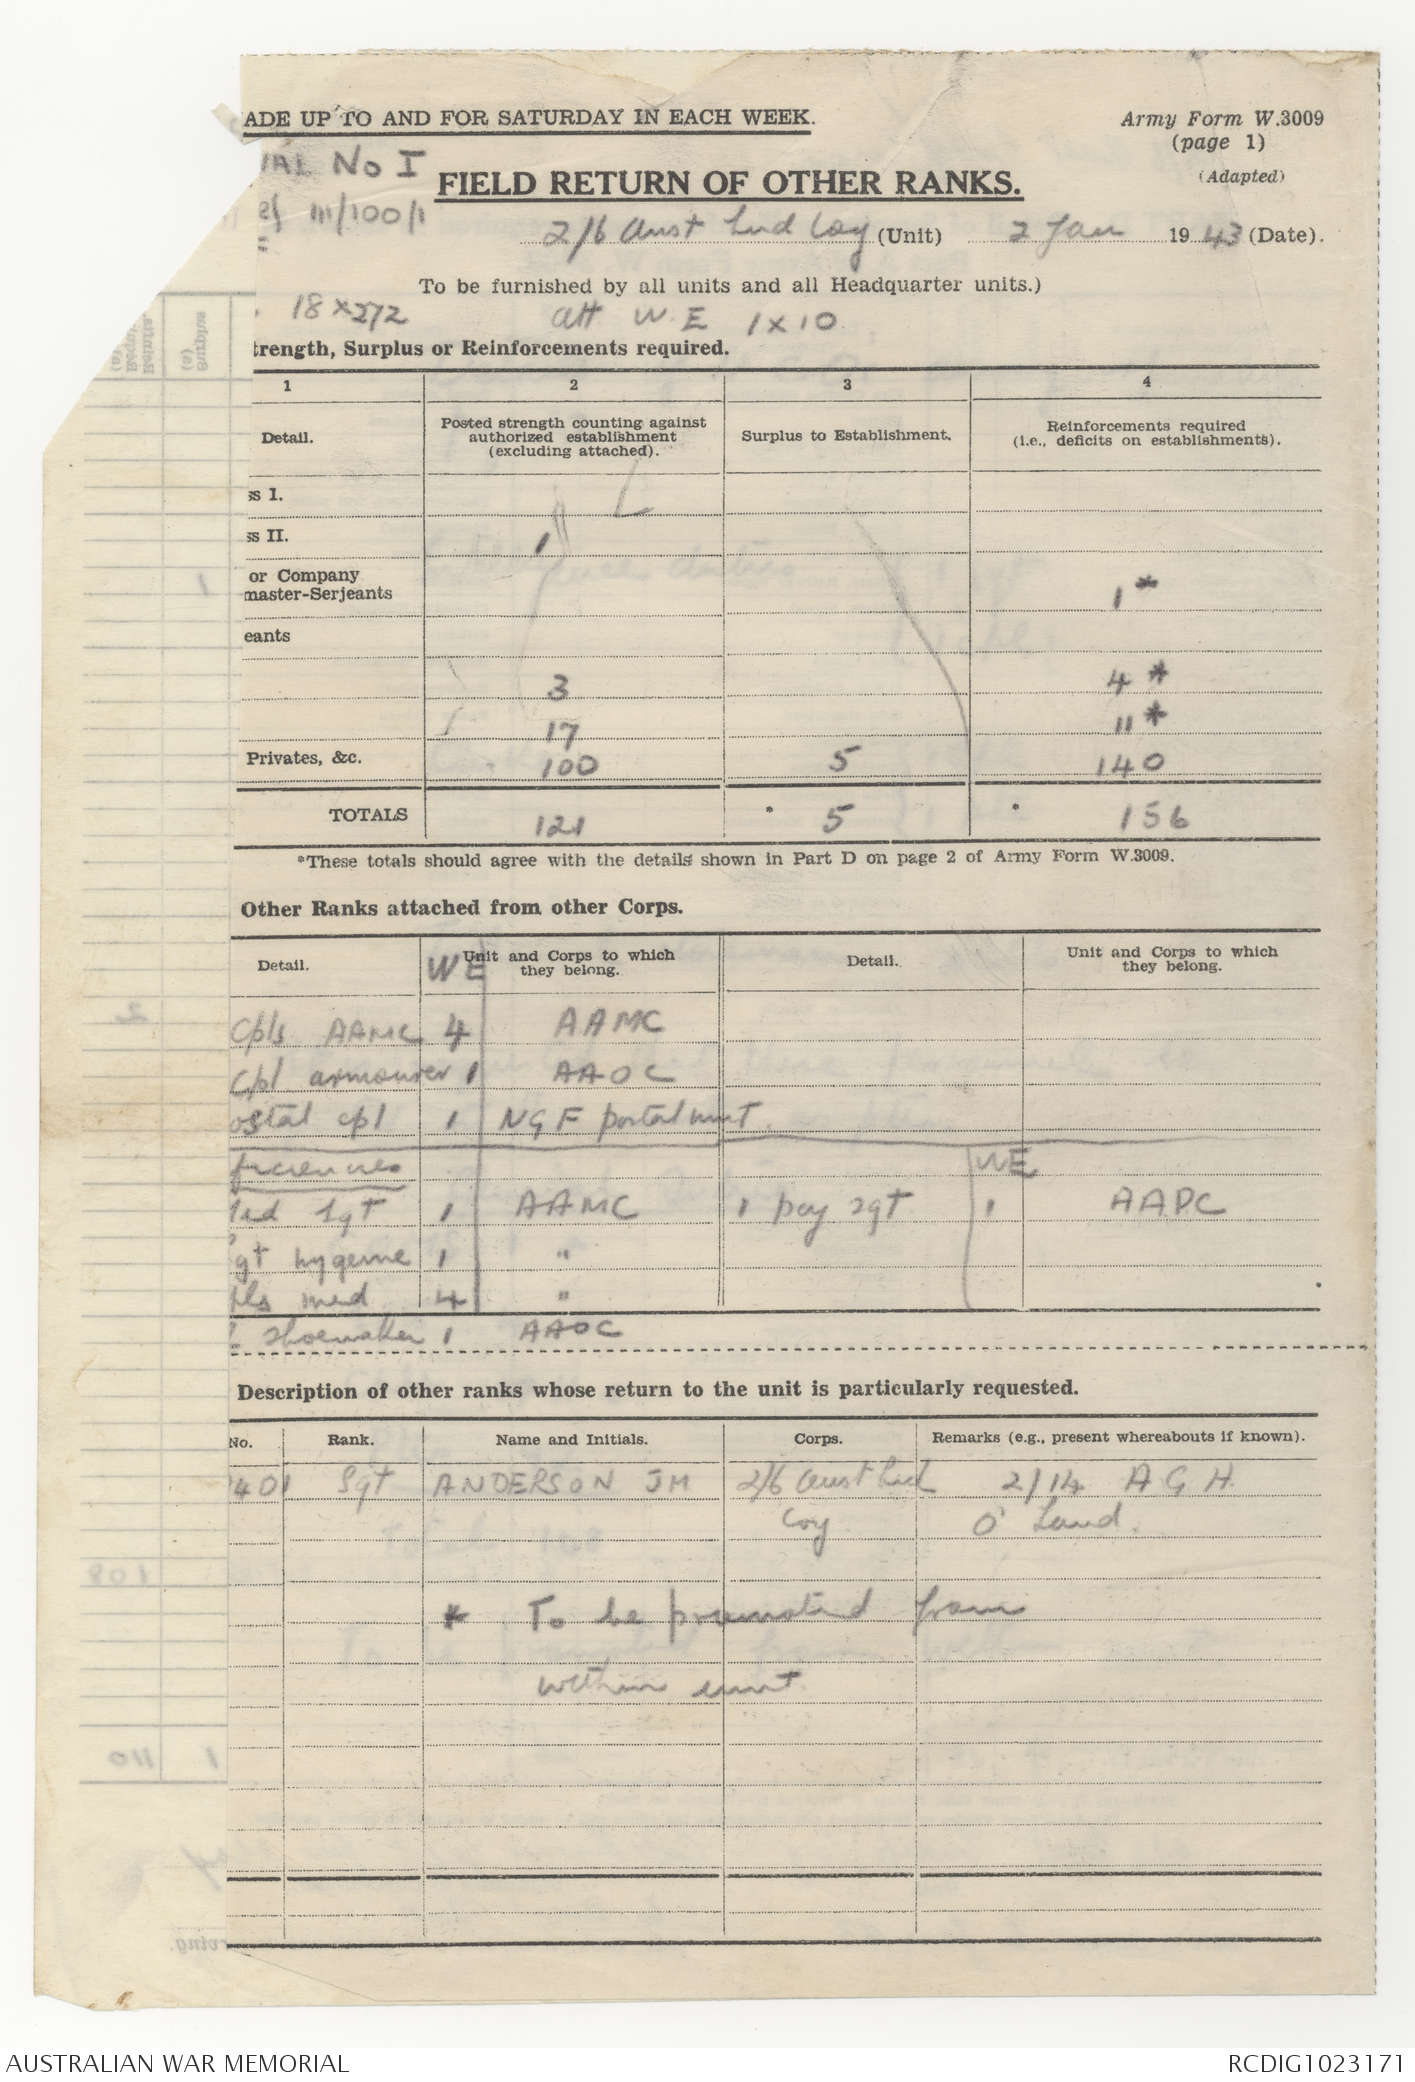 ADE UP TO AND FOR SATURDAY IN EACH WEEK.
Army Form W.3009
(page 1)
(Adapted)
IAL No I
FIELD RETURN OF OTHER RANKS.
111/100/1
2/6 Aust Ind Coy (Unit) 2 Jan 1943 (Date).
To be furnished by all units and all Headquarter units.)
18 x 272 att W.E 1 x 10
trength, Surplus or Reinforcements required.
1 2 3 4
Detail.
Posted strength counting against
authorized establishment
(excluding attached).
Surplus to Establishment.
Reinforcements required
(i.e., deficits on establishments).
ss I.
ss II. 1
or Company
master-Serjeants 1 *
eants
3 4 *
17 11 *
Privates, &c. 100 5 140
TOTALS 121 * 5 * 156
*These totals should agree with the details shown in Part D on page 2 of Army Form W.3009.
Other Ranks attached from other Corps.
Detail. WE Unit and Corps to which
they belong.
Detail. Unit and Corps to which
they belong.
Cpls AAMC 4 AAMC
Cpl armourer 1 AAOC
ostal cpl 1 NGF postal unit.
ficiencies WE
Med Sgt 1 AAMC 1 pay sgt 1 AAPC
gt hygeine 1 "
pls med 4 "
shoemaker 1 AAOC
Description of other ranks whose return to the unit is particularly requested.
No. Rank. Name and Initials. Corps. Remarks (e.g., present whereabouts if known).
401 Sgt ANDERSON JM 2/6 Aust Ind 2/14 A G H.
Coy Q'Land.
* To be promoted from
within unit.
AUSTRALIAN WAR MEMORIAL
RCDIG1023171